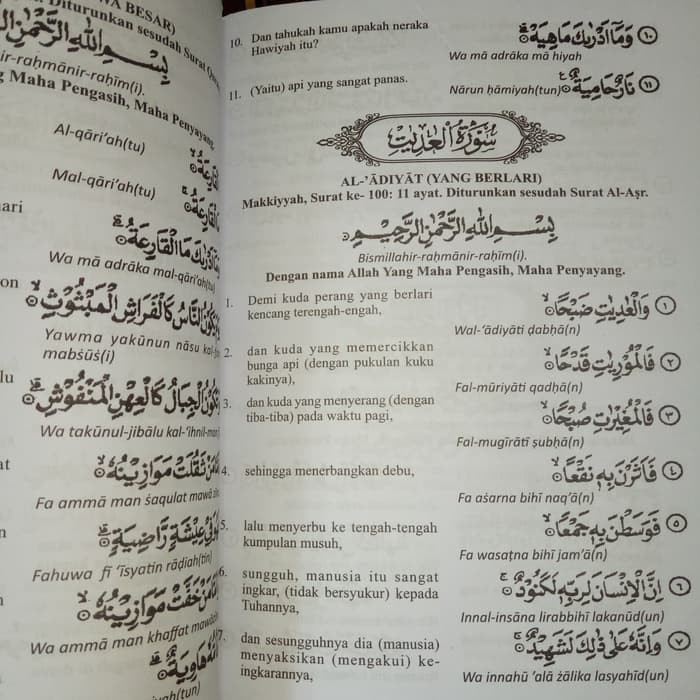 WA BESAR)
Diturunkan sesudah Surat
بِسْمِ اللّٰهِ الرَّحْمٰنِ
ir-raḥmānir-raḥīm(i).
Maha Pengasih, Maha Penyayang.
الْقَارِعَةُ
Al-qāri'ah(tu)
مَا الْقَارِعَةُ
Mal-qāri'ah(tu)
اَدْرٰىكَ مَا الْقَارِعَةُ
Wa mā adrāka mal-qāri'ah(tu)
يَكُوْنُ النَّاسُ كَالْفَرَاشِ الْمَبْثُوْثِ
Yawma yakūnun nāsu kal-
mabṡūṡ(i)
تَكُوْنُ الْجِبَالُ كَالْعِهْنِ الْمَنْفُوْشِ
Wa takūnul-jibālu kal-'ihnil-man
مَنْ ثَقُلَتْ مَوَازِيْنُهٗ
Fa ammā man ṡaqulat mawā
فِيْ عِيْشَةٍ رَّاضِيَةٍ
Fahuwa fī 'īsyatin rāḍiah(tin)
مَنْ خَفَّتْ مَوَازِيْنُهٗ
Wa ammā man khaffat
هَاوِيَةٌ
hāwiyah(tun)
10. Dan tahukah kamu apakah neraka
Hawiyah itu?
وَمَآ اَدْرٰىكَ مَا هِيَهْ ۝١٠
Wa mā adrāka mā hiyah
11. (Yaitu) api yang sangat panas.
نَارٌ حَامِيَةٌ ۝١١
Nārun ḥāmiyah(tun)
سُوْرَةُ الْعٰدِيٰتِ
AL-'ĀDIYĀT (YANG BERLARI)
Makkiyyah, Surat ke- 100: 11 ayat. Diturunkan sesudah Surat Al-Aṣr.
بِسْمِ اللّٰهِ الرَّحْمٰنِ الرَّحِيْمِ
Bismillahir-raḥmānir-raḥīm(i).
Dengan nama Allah Yang Maha Pengasih, Maha Penyayang.
1. Demi kuda perang yang berlari
kencang terengah-engah,
وَالْعٰدِيٰتِ ضَبْحًا ۝١
Wal-'ādiyāti ḍabḥā(n)
2. dan kuda yang memercikkan
bunga api (dengan pukulan kuku
kakinya),
فَالْمُوْرِيٰتِ قَدْحًا ۝٢
Fal-mūriyāti qadḥā(n)
3. dan kuda yang menyerang (dengan
tiba-tiba) pada waktu pagi,
فَالْمُغِيْرٰتِ صُبْحًا ۝٣
Fal-mugīrāti ṣubḥā(n)
4. sehingga menerbangkan debu,
فَاَثَرْنَ بِهٖ نَقْعًا ۝٤
Fa aṡarna bihī naq'ā(n)
5. lalu menyerbu ke tengah-tengah
kumpulan musuh,
فَوَسَطْنَ بِهٖ جَمْعًا ۝٥
Fa wasaṭna bihī jam'ā(n)
6. sungguh, manusia itu sangat
ingkar, (tidak bersyukur) kepada
Tuhannya,
اِنَّ الْاِنْسَانَ لِرَبِّهٖ لَكَنُوْدٌ ۝٦
Innal-insāna lirabbihī lakanūd(un)
7. dan sesungguhnya dia (manusia)
menyaksikan (mengakui) ke-
ingkarannya,
وَاِنَّهٗ عَلٰى ذٰلِكَ لَشَهِيْدٌ ۝٧
Wa innahū 'alā żālika lasyahīd(un)